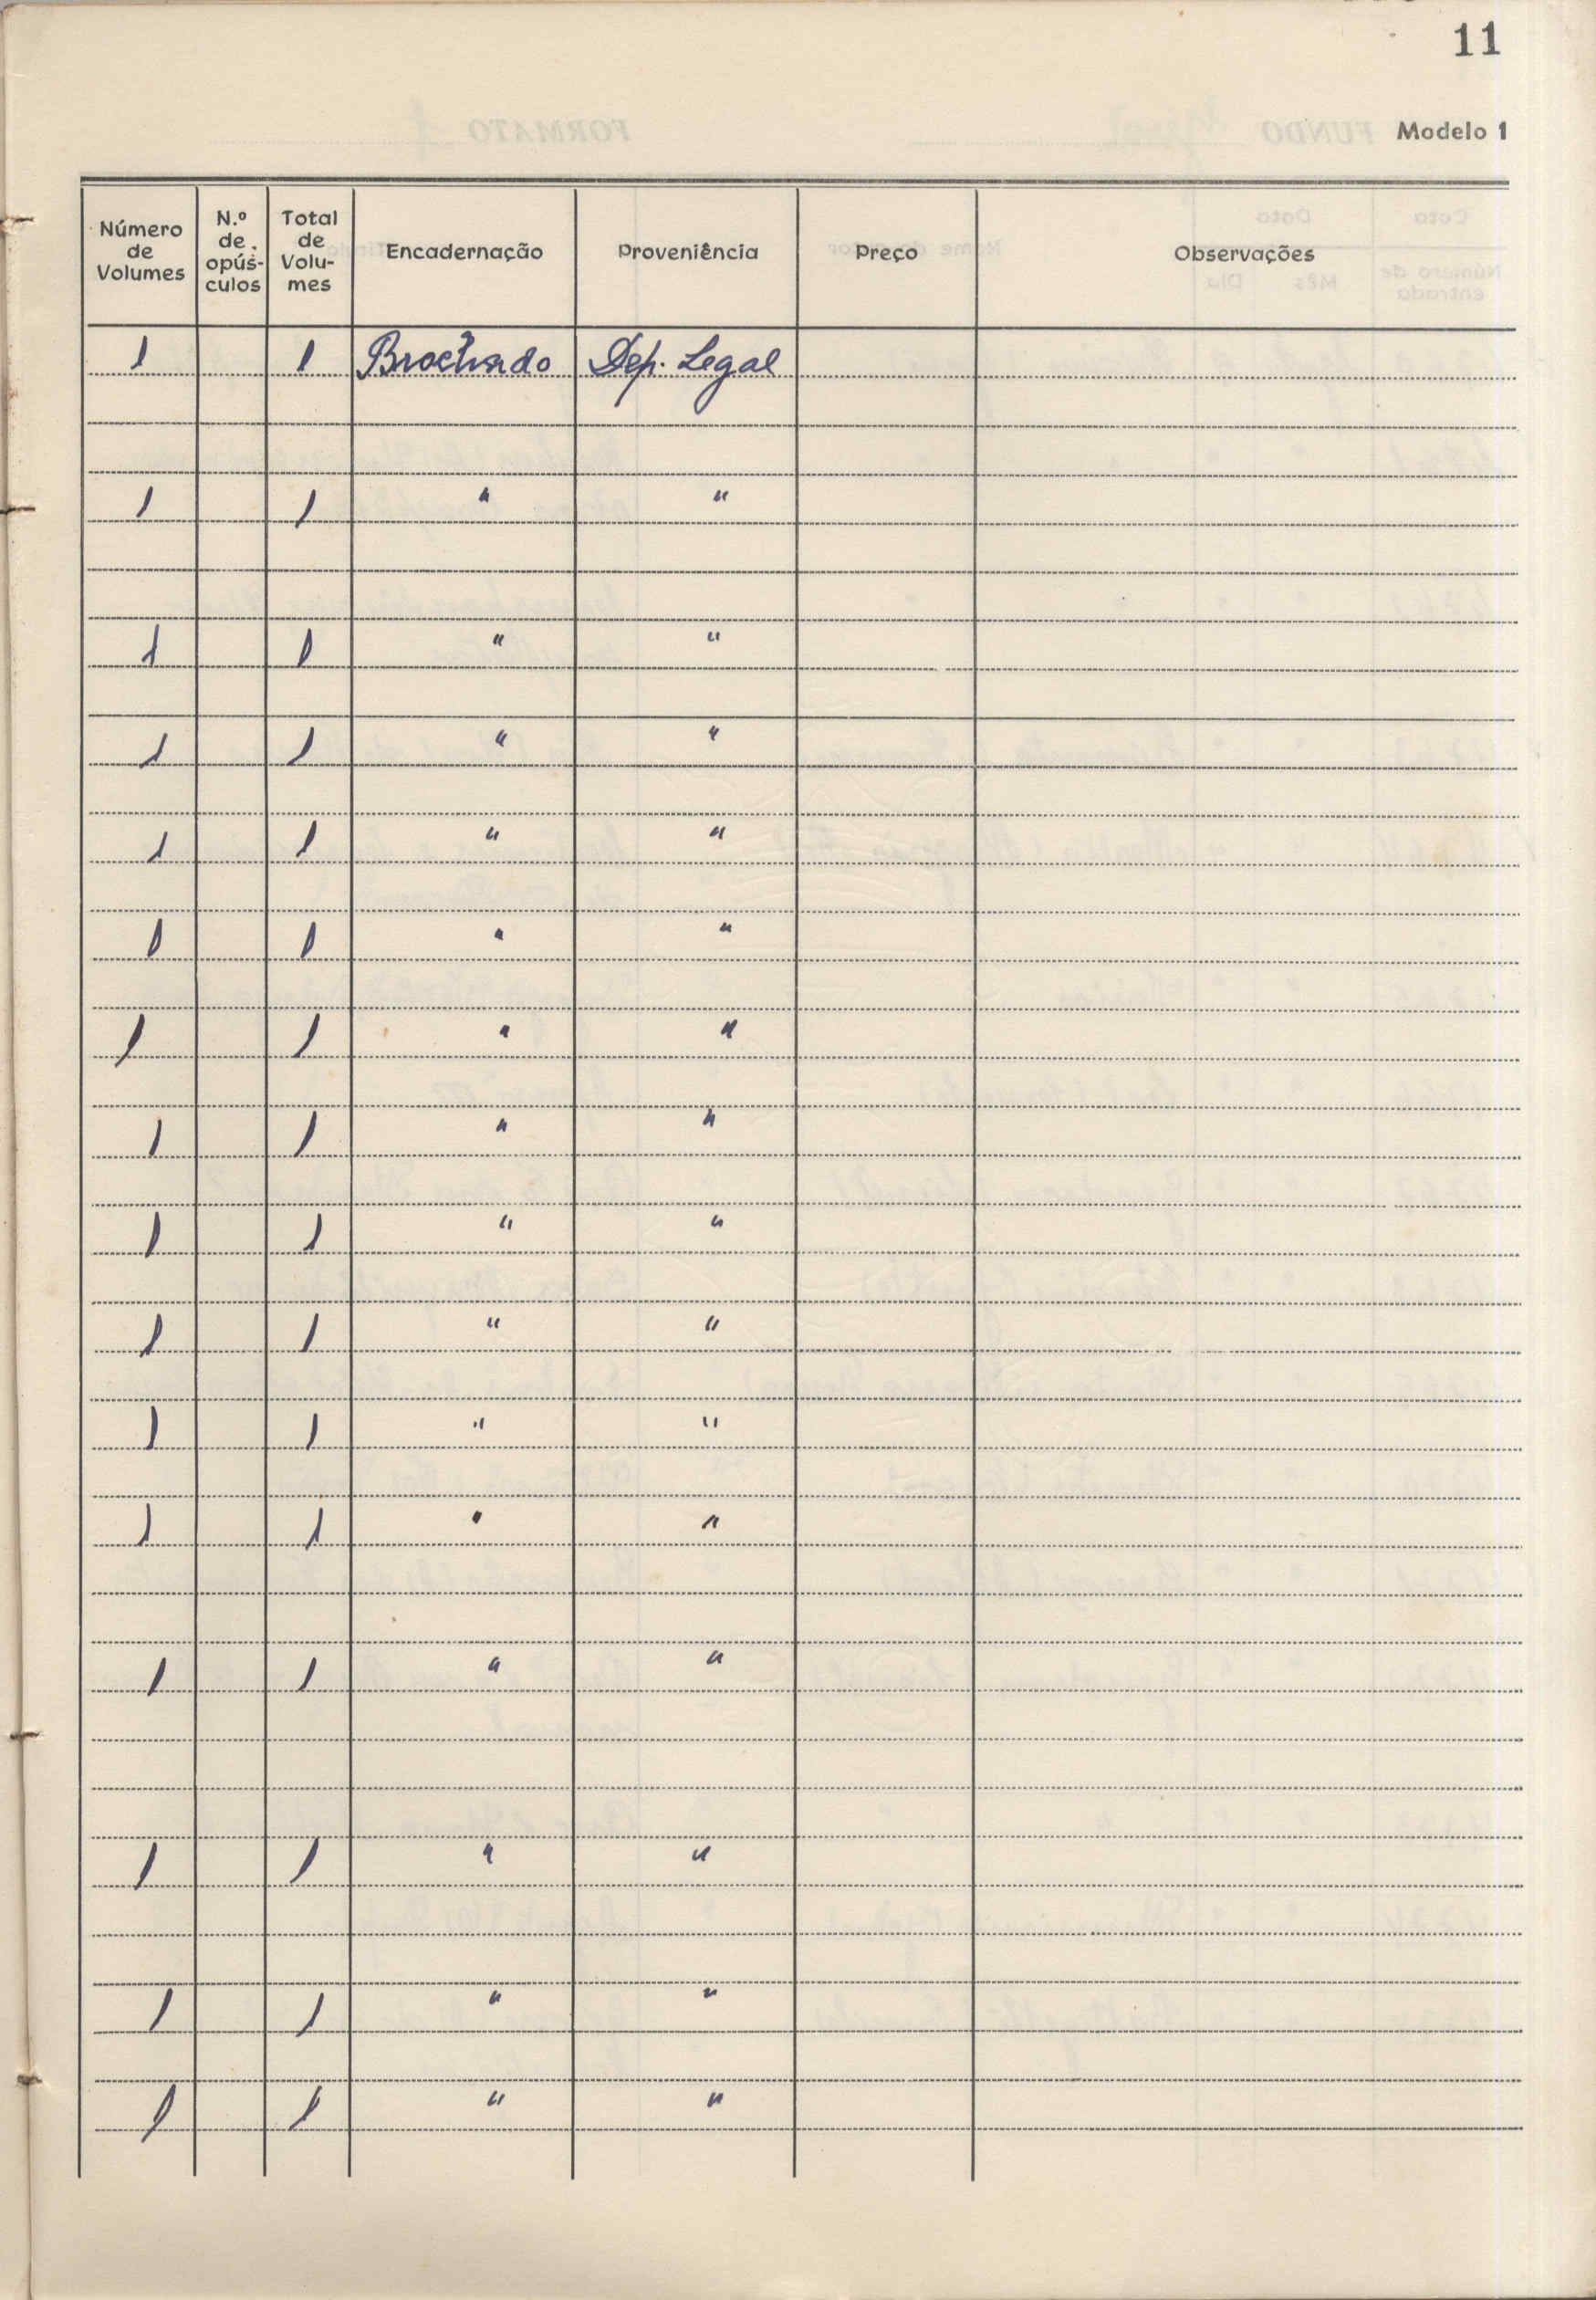 11
Modelo 1
Número de Volumes | N.º de opús-culos | Total de Volu-mes | Encadernação | Proveniência | Preço | Observações
1 | | 1 | Brochado | Dep. Legal
1 | | 1 | " | "
1 | | 1 | " | "
1 | | 1 | " | "
1 | | 1 | " | "
1 | | 1 | " | "
1 | | 1 | " | "
1 | | 1 | " | "
1 | | 1 | " | "
1 | | 1 | " | "
1 | | 1 | " | "
1 | | 1 | " | "
1 | | 1 | " | "
1 | | 1 | " | "
1 | | 1 | " | "
1 | | 1 | " | "